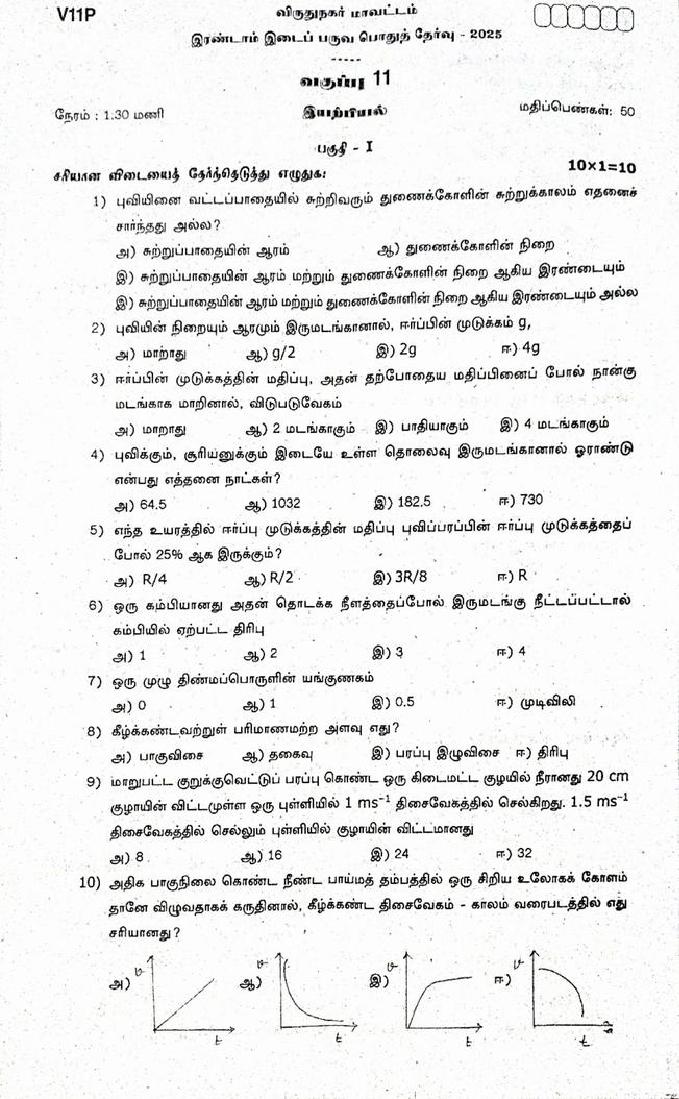 V11P
விருதுநகர் மாவட்டம்
இரண்டாம் இடைப் பருவ பொதுத் தேர்வு - 2025
வகுப்பு 11
நேரம் : 1.30 மணி இயற்பியல் மதிப்பெண்கள்: 50
பகுதி - I
சரியான விடையைத் தேர்ந்தெடுத்து எழுதுக: 10×1=10
1) புவியினை வட்டப்பாதையில் சுற்றிவரும் துணைக்கோளின் சுற்றுக்காலம் எதனைச்
சார்ந்தது அல்ல?
அ) சுற்றுப்பாதையின் ஆரம் ஆ) துணைக்கோளின் நிறை
இ) சுற்றுப்பாதையின் ஆரம் மற்றும் துணைக்கோளின் நிறை ஆகிய இரண்டையும்
இ) சுற்றுப்பாதையின் ஆரம் மற்றும் துணைக்கோளின் நிறை ஆகிய இரண்டையும் அல்ல
2) புவியின் நிறையும் ஆரமும் இருமடங்கானால், ஈர்ப்பின் முடுக்கம் g,
அ) மாறாது ஆ) g/2 இ) 2g ஈ) 4g
3) ஈர்ப்பின் முடுக்கத்தின் மதிப்பு, அதன் தற்போதைய மதிப்பினைப் போல் நான்கு
மடங்காக மாறினால், விடுபடுவேகம்
அ) மாறாது ஆ) 2 மடங்காகும் இ) பாதியாகும் இ) 4 மடங்காகும்
4) புவிக்கும், சூரியனுக்கும் இடையே உள்ள தொலைவு இருமடங்கானால் ஓராண்டு
என்பது எத்தனை நாட்கள்?
அ) 64.5 ஆ) 1032 இ) 182.5 ஈ) 730
5) எந்த உயரத்தில் ஈர்ப்பு முடுக்கத்தின் மதிப்பு புவிப்பரப்பின் ஈர்ப்பு முடுக்கத்தைப்
போல் 25% ஆக இருக்கும்?
அ) R/4 ஆ) R/2 இ) 3R/8 ஈ) R
6) ஒரு கம்பியானது அதன் தொடக்க நீளத்தைப்போல் இருமடங்கு நீட்டப்பட்டால்
கம்பியில் ஏற்பட்ட திரிபு
அ) 1 ஆ) 2 இ) 3 ஈ) 4
7) ஒரு முழு திண்மப்பொருளின் யங்குணகம்
அ) 0 ஆ) 1 இ) 0.5 ஈ) முடிவிலி
8) கீழ்க்கண்டவற்றுள் பரிமாணமற்ற அளவு எது?
அ) பாகுவிசை ஆ) தகைவு இ) பரப்பு இழுவிசை ஈ) திரிபு
9) மாறுபட்ட குறுக்குவெட்டுப் பரப்பு கொண்ட ஒரு கிடைமட்ட குழயில் நீரானது 20 cm
குழாயின் விட்டமுள்ள ஒரு புள்ளியில் 1 ms⁻¹ திசைவேகத்தில் செல்கிறது. 1.5 ms⁻¹
திசைவேகத்தில் செல்லும் புள்ளியில் குழாயின் விட்டமானது
அ) 8 ஆ) 16 இ) 24 ஈ) 32
10) அதிக பாகுநிலை கொண்ட நீண்ட பாய்மத் தம்பத்தில் ஒரு சிறிய உலோகக் கோளம்
தானே விழுவதாகக் கருதினால், கீழ்க்கண்ட திசைவேகம் - காலம் வரைபடத்தில் எது
சரியானது?
அ) v t ஆ) v t இ) v t ஈ) v t